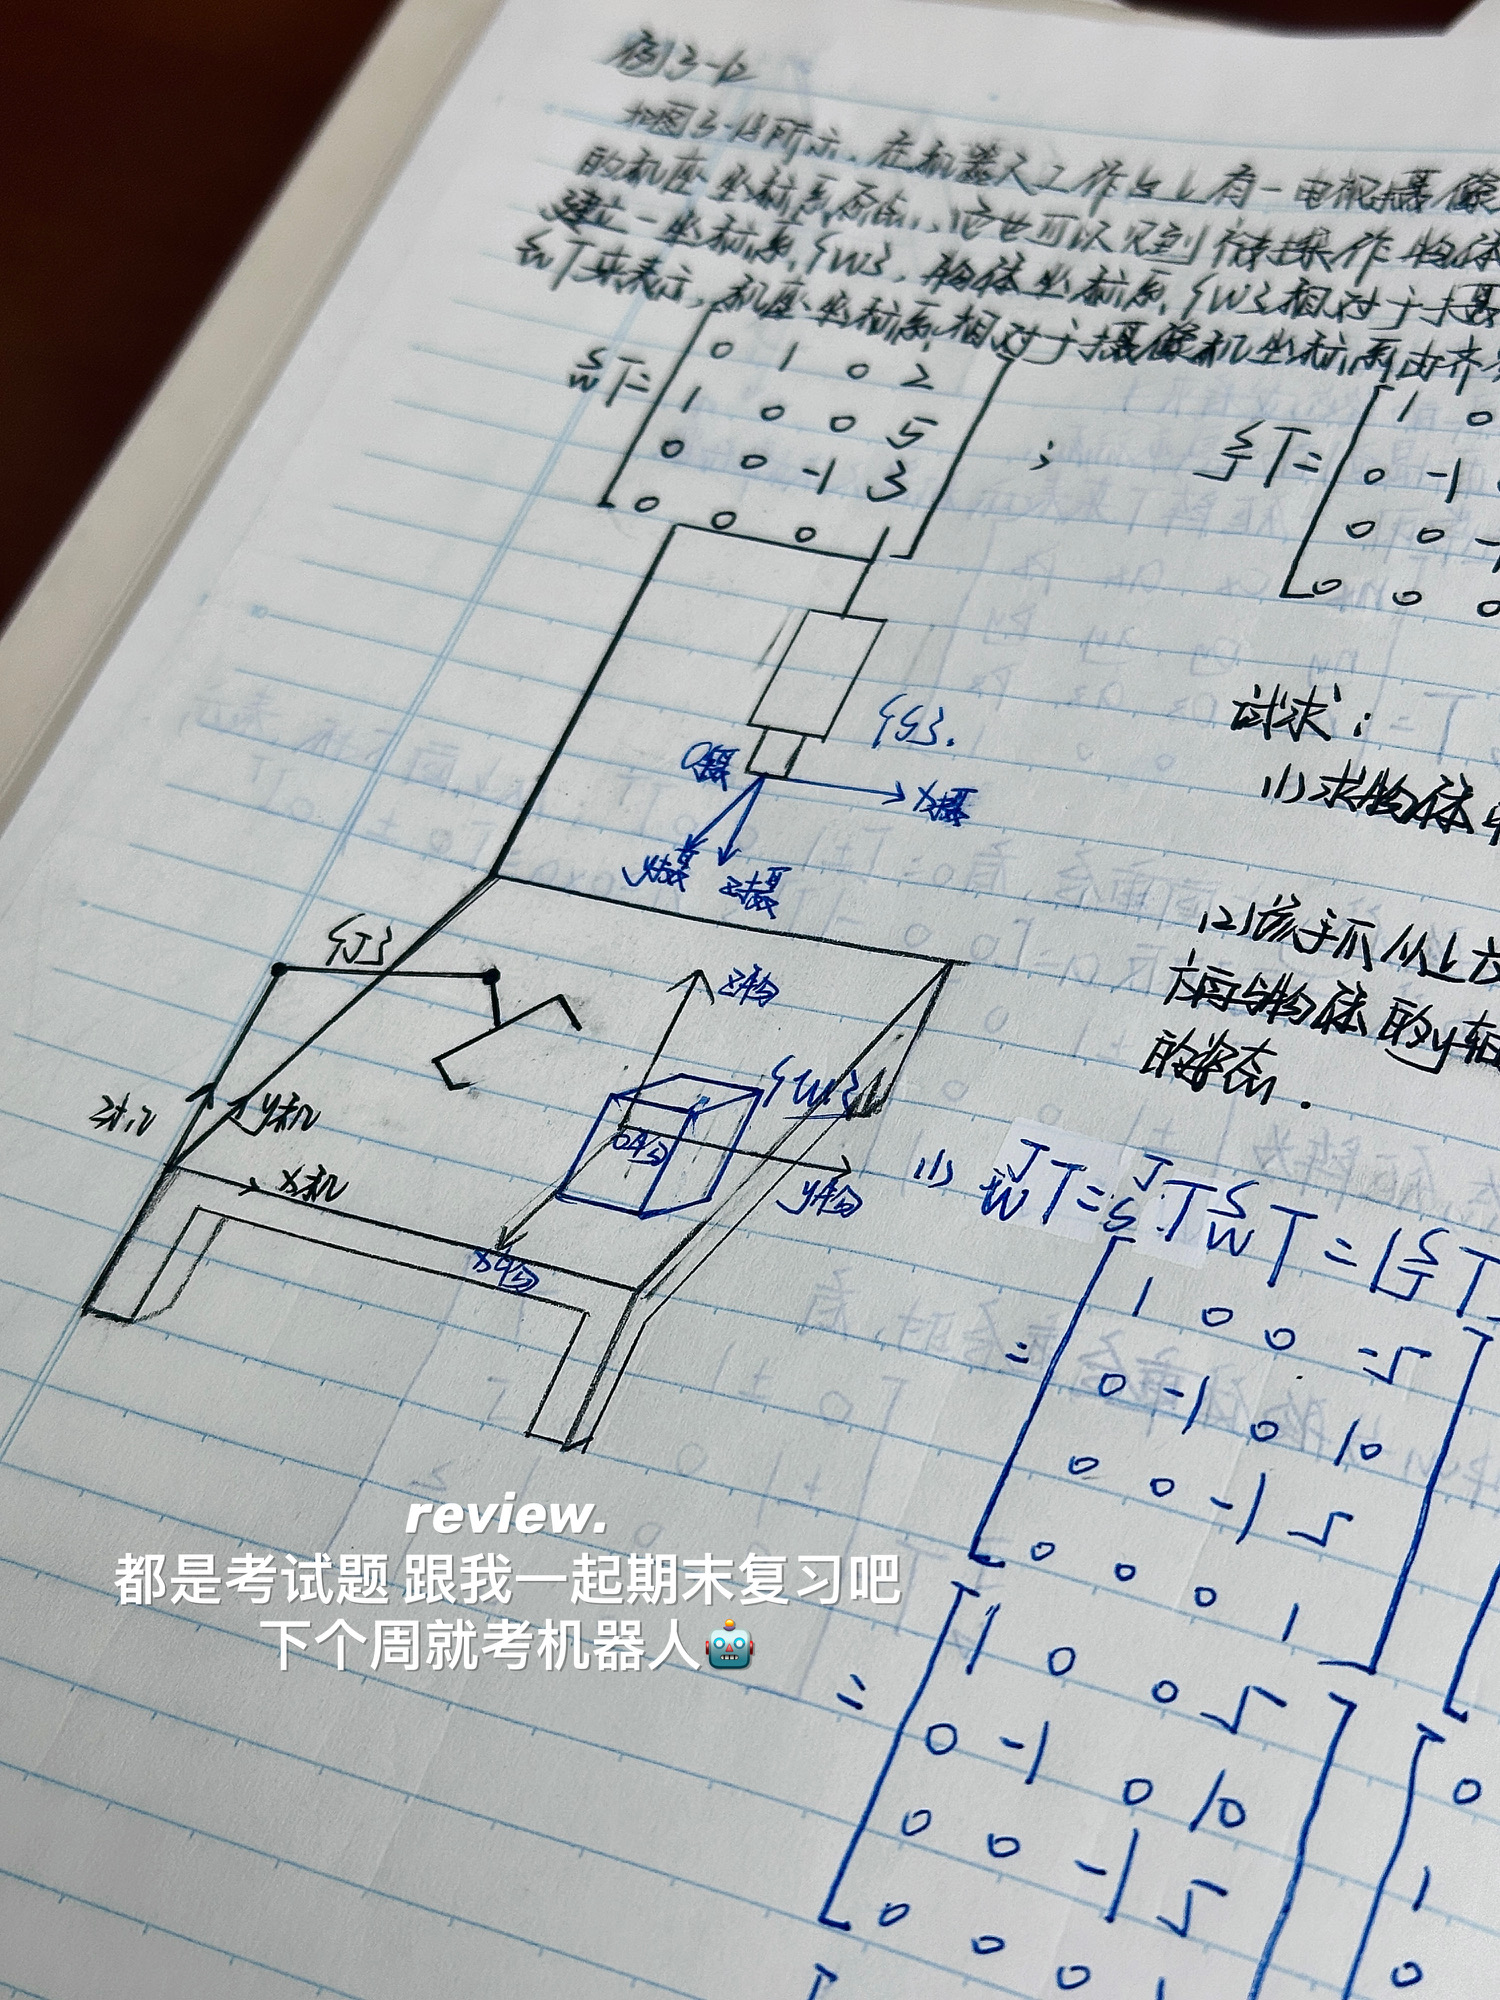 例3-12
如图3-18所示,在机器人工作台上有一电视摄像
的机座坐标系原点,它也可以见到待操作物体
建立一坐标系{W},物体坐标系{W}相对于摄
S W T来表示,机座坐标系相对于摄像机坐标系由齐
S W T=
0 1 0 2
1 0 0 5
0 0 -1 3
0 0 0
;
S J T=
1 0
0 -1
0 0 -1
0 0 0
试求:
(1)求物体
{S}.
O摄
X摄
y摄 Z摄
(2)该手爪从上方
方向与物体的y轴
的姿态.
{J}
Z物
{W}
O物
y物
X物
Z机
y机
X机
(1) J W T= J S T S W T = [S J T
=
1 0 0 -5
0 -1 0 10
0 0 -1 5
0 0 0 1
=
1 0 0 5
0 -1 0 10
0 0 -1 5
0 0 0 1
0
1
0
review.
都是考试题 跟我一起期末复习吧
下个周就考机器人🤖